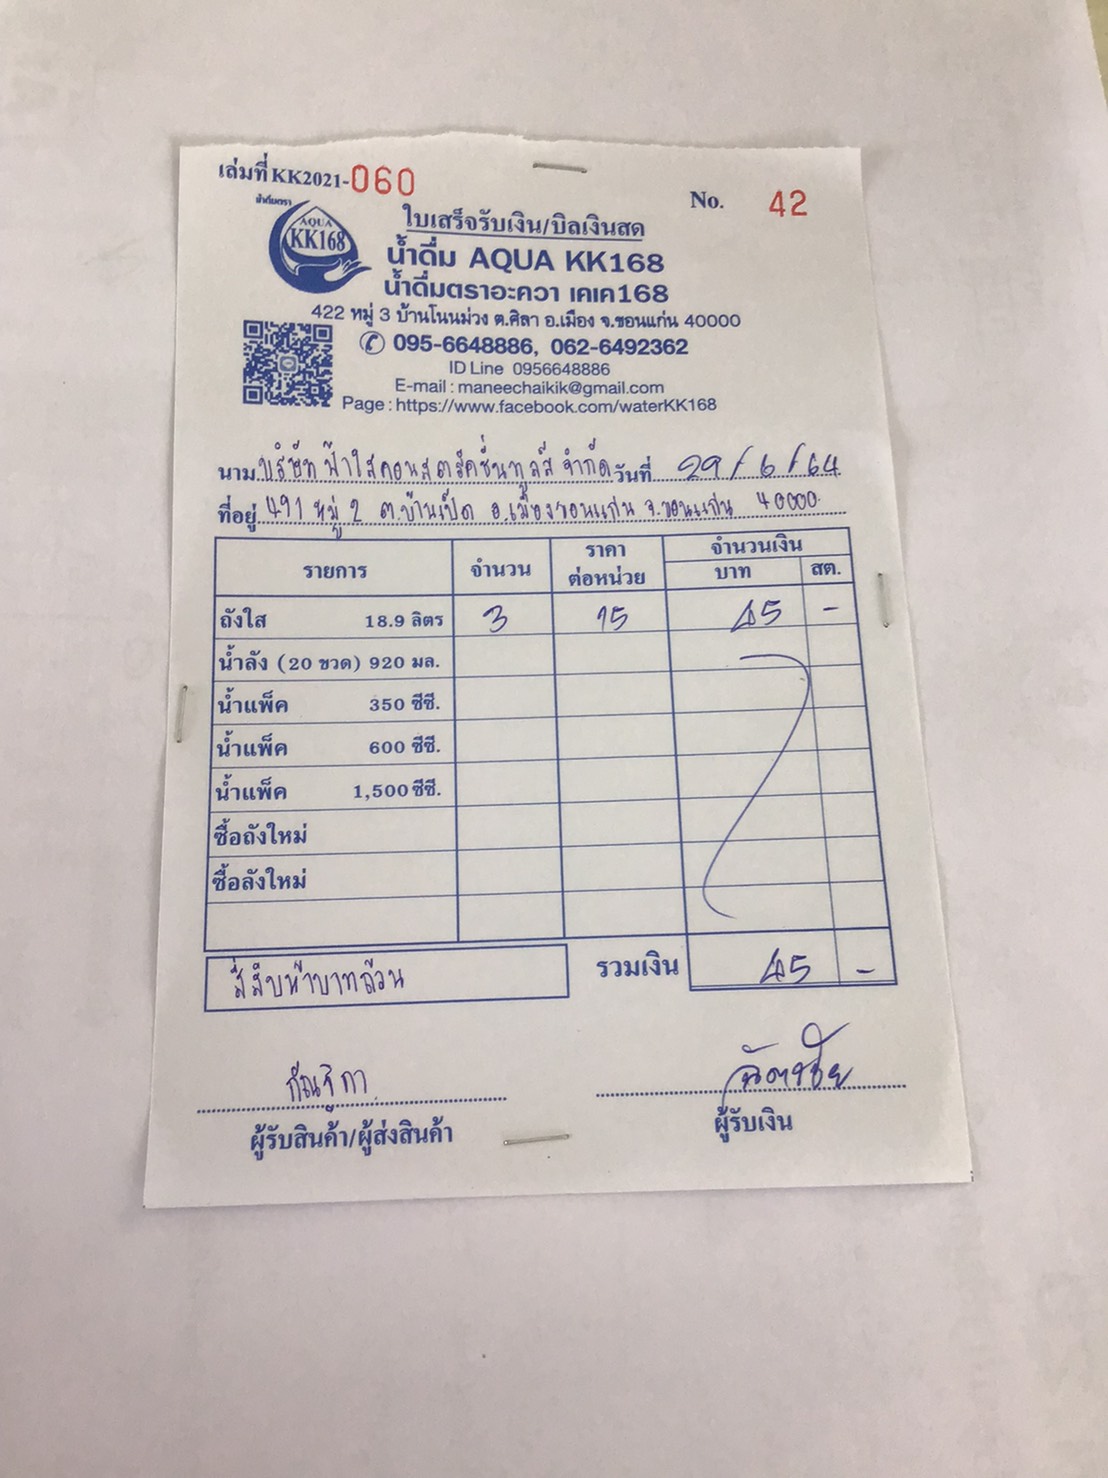 เล่มที่ KK2021-060
No. 42
น้ำดื่มตรา
AQUA
KK168
ใบเสร็จรับเงิน/บิลเงินสด
น้ำดื่ม AQUA KK168
น้ำดื่มตราอะควา เคเค168
422 หมู่ 3 บ้านโนนม่วง ต.ศิลา อ.เมือง จ.ขอนแก่น 40000
095-6648886, 062-6492362
ID Line 0956648886
E-mail : maneechaikik@gmail.com
Page : https://www.facebook.com/waterKK168
นาม บริษัท ฟ้าใสคอนสตรัคชั่นทูลส์ จำกัด วันที่ 29/6/64
ที่อยู่ 491 หมู่ 2 ต.บ้านเป็ด อ.เมืองขอนแก่น จ.ขอนแก่น 40000
รายการ จำนวน ราคาต่อหน่วย จำนวนเงิน
บาท สต.
ถังใส 18.9 ลิตร 3 15 45 -
น้ำลัง (20 ขวด) 920 มล.
น้ำแพ็ค 350 ซีซี.
น้ำแพ็ค 600 ซีซี.
น้ำแพ็ค 1,500 ซีซี.
ซื้อถังใหม่
ซื้อลังใหม่
สี่สิบห้าบาทถ้วน รวมเงิน 45 -
กัณฐิกา ฉัตรชัย
ผู้รับสินค้า/ผู้ส่งสินค้า ผู้รับเงิน